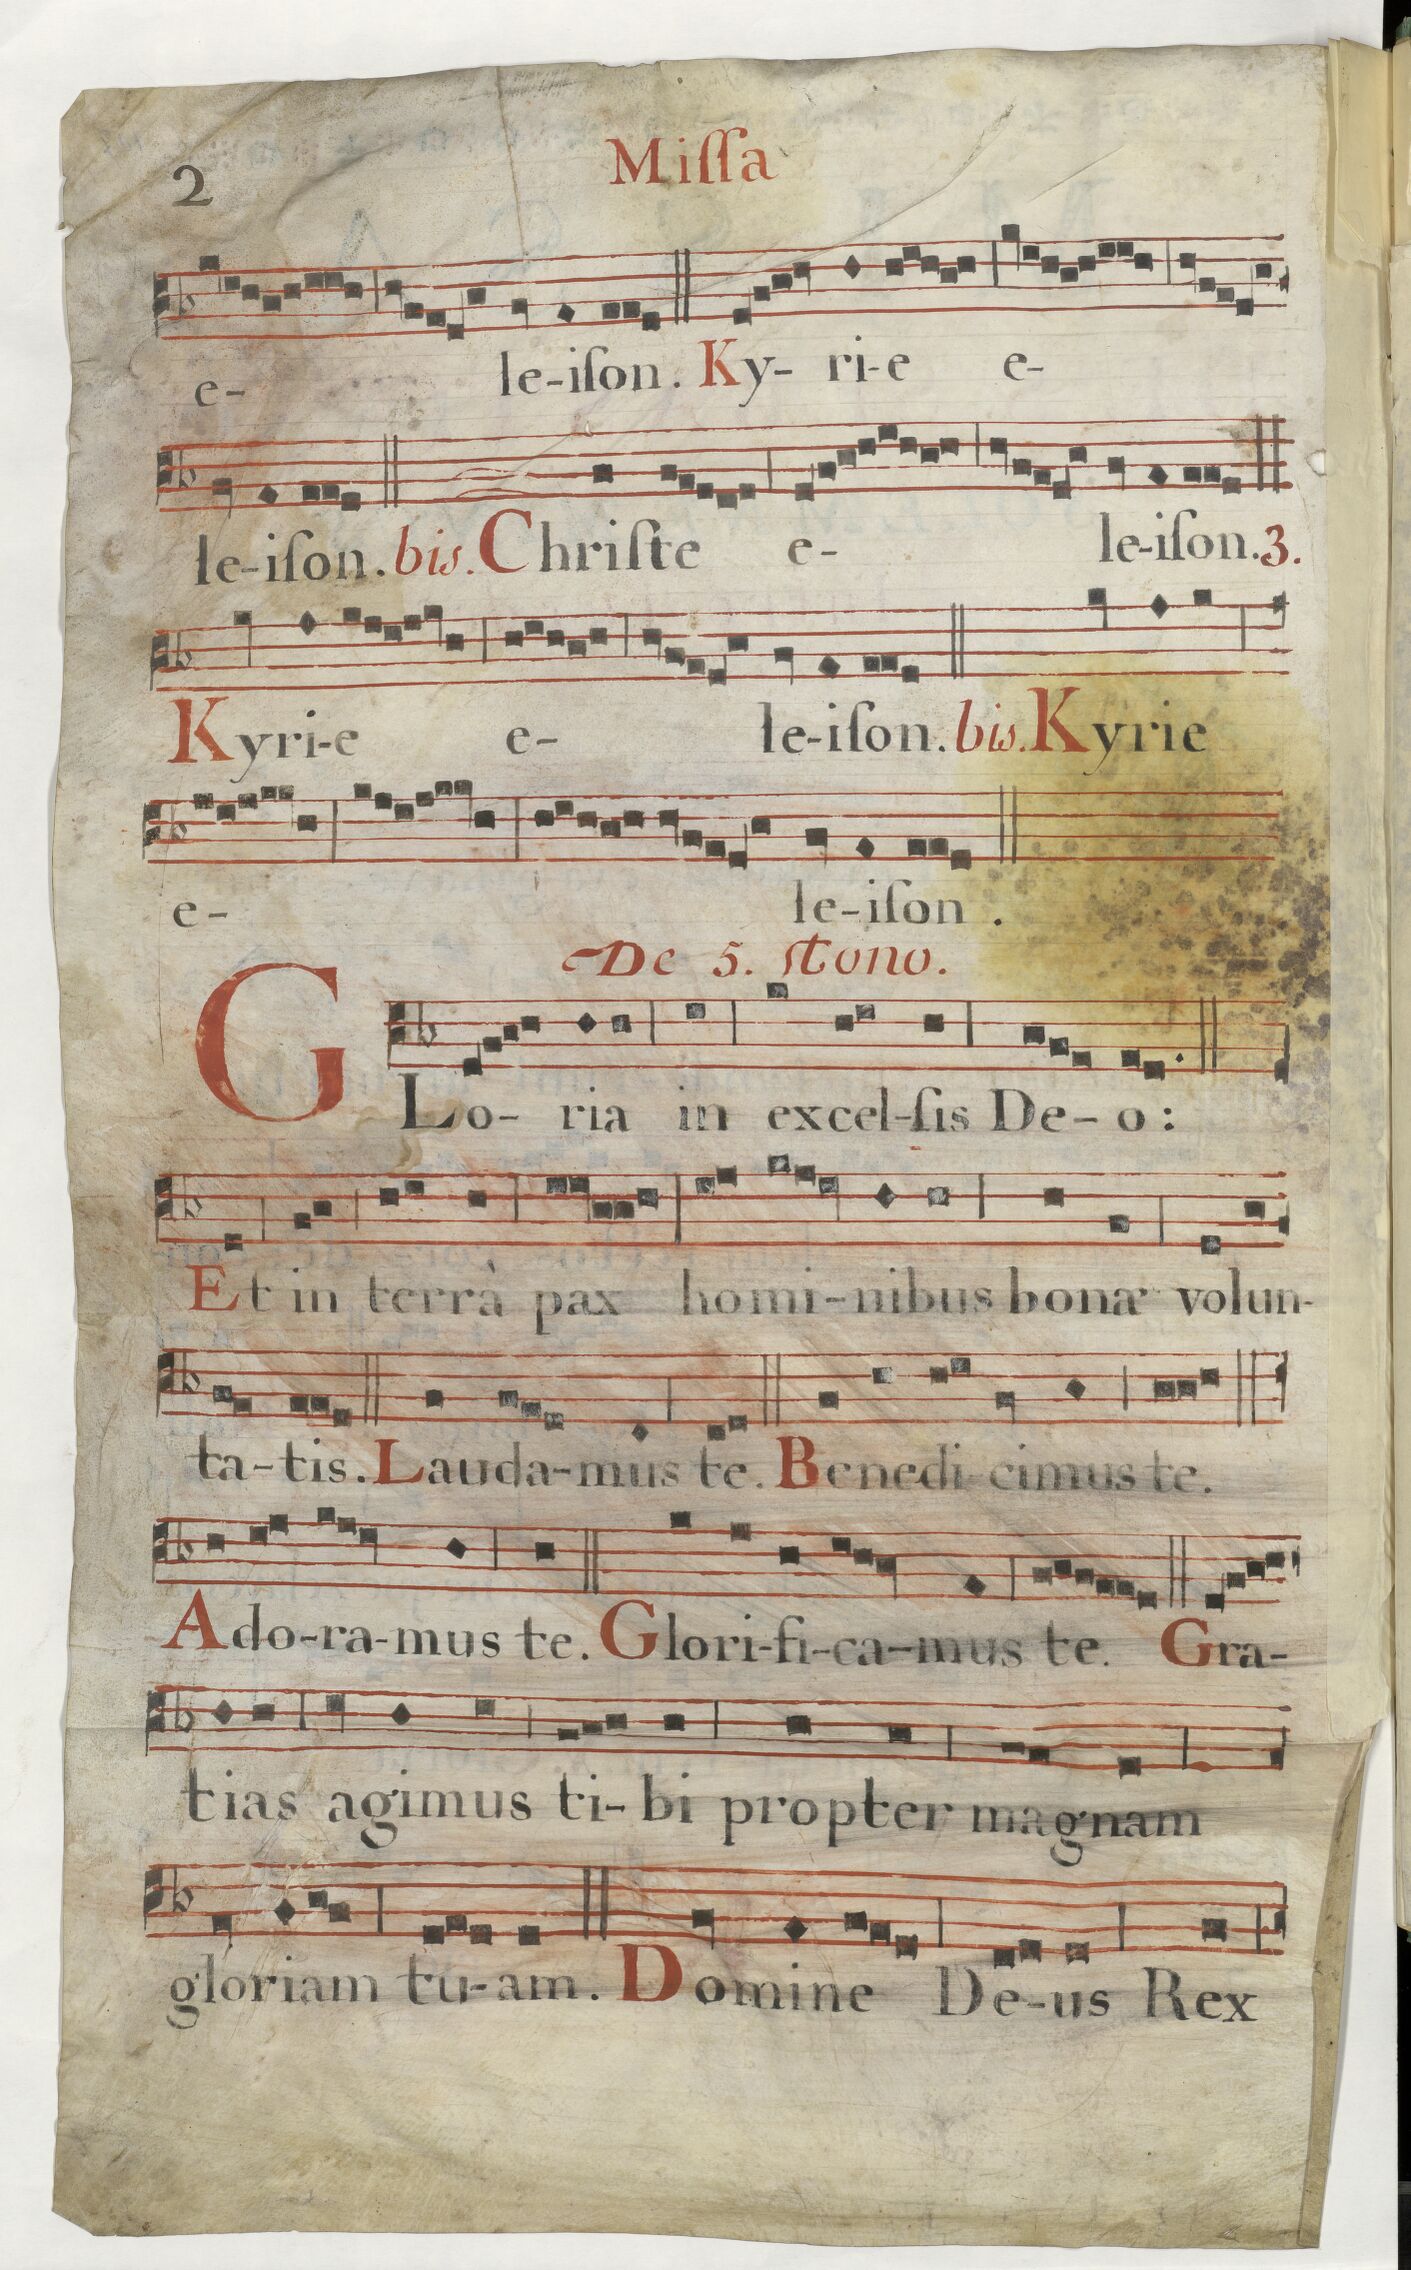 2
Miſſa
e- le-iſon. Ky- ri-e e-
le-iſon. bis. Chriſte e- le-iſon. 3.
Kyri-e e- le-iſon. bis. Kyrie
e- le-iſon .
De 5. tono.
GLo- ria in excel-ſis De-o:
Et in terrà pax homi-nibus bona volun-
ta-tis. Lauda-mus te. Benedi-cimus te.
Ado-ra-mus te. Glori-fi-ca-mus te. Gra-
tias agimus ti-bi propter magnam
gloriam tu-am. Domine De-us Rex